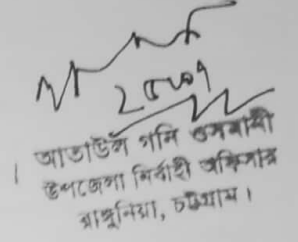 আতাউল গনি ওসমানী
উপজেলা নির্বাহী অফিসার
রাঙ্গুনিয়া, চট্টগ্রাম।